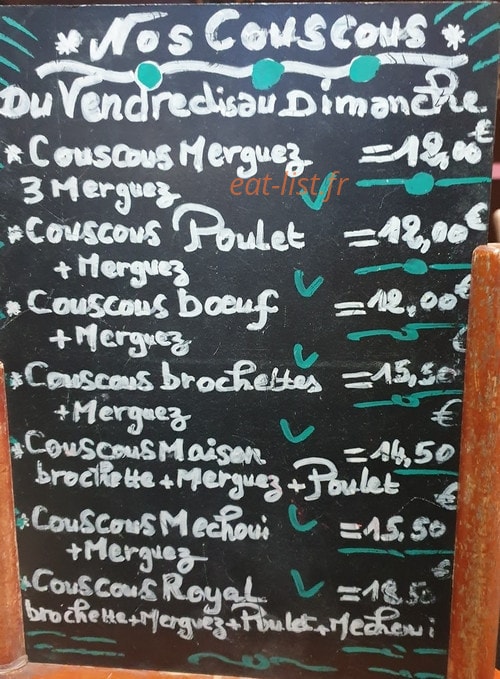 * Nos Couscous *
Du Vendredi au Dimanche
* Couscous Merguez = 12,00 €
3 Merguez
eat-list.fr
* Couscous Poulet = 12,00 €
+ Merguez
* Couscous bœuf = 12,00 €
+ Merguez €
* Couscous brochettes = 15,50
+ Merguez €
* Couscous Maison = 14,50
brochette + Merguez + Poulet €
* Couscous Mechoui = 15,50
+ Merguez €
* Couscous Royal = 18,50
brochette + Merguez + Poulet + Mechoui